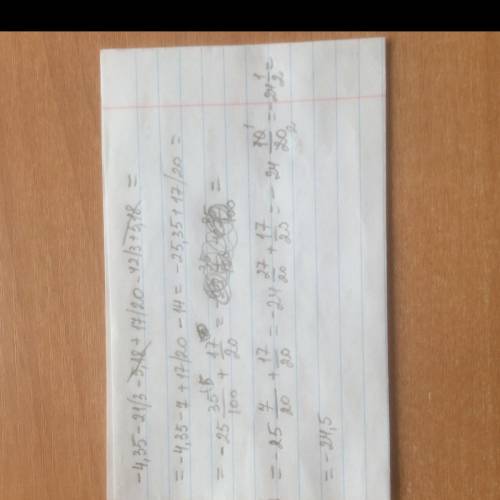 -4,35 - 21/3 - 5,18 + 17/20 - 42/3 + 5,18 =
= -4,35 - 7 + 17/20 - 14 = -25,35 + 17/20 =
= -25 35/100 + 17/20 = =
= -25 7/20 + 17/20 = -24 27/20 + 17/20 = -24 10/20 = -24 1/2 =
= -24,5